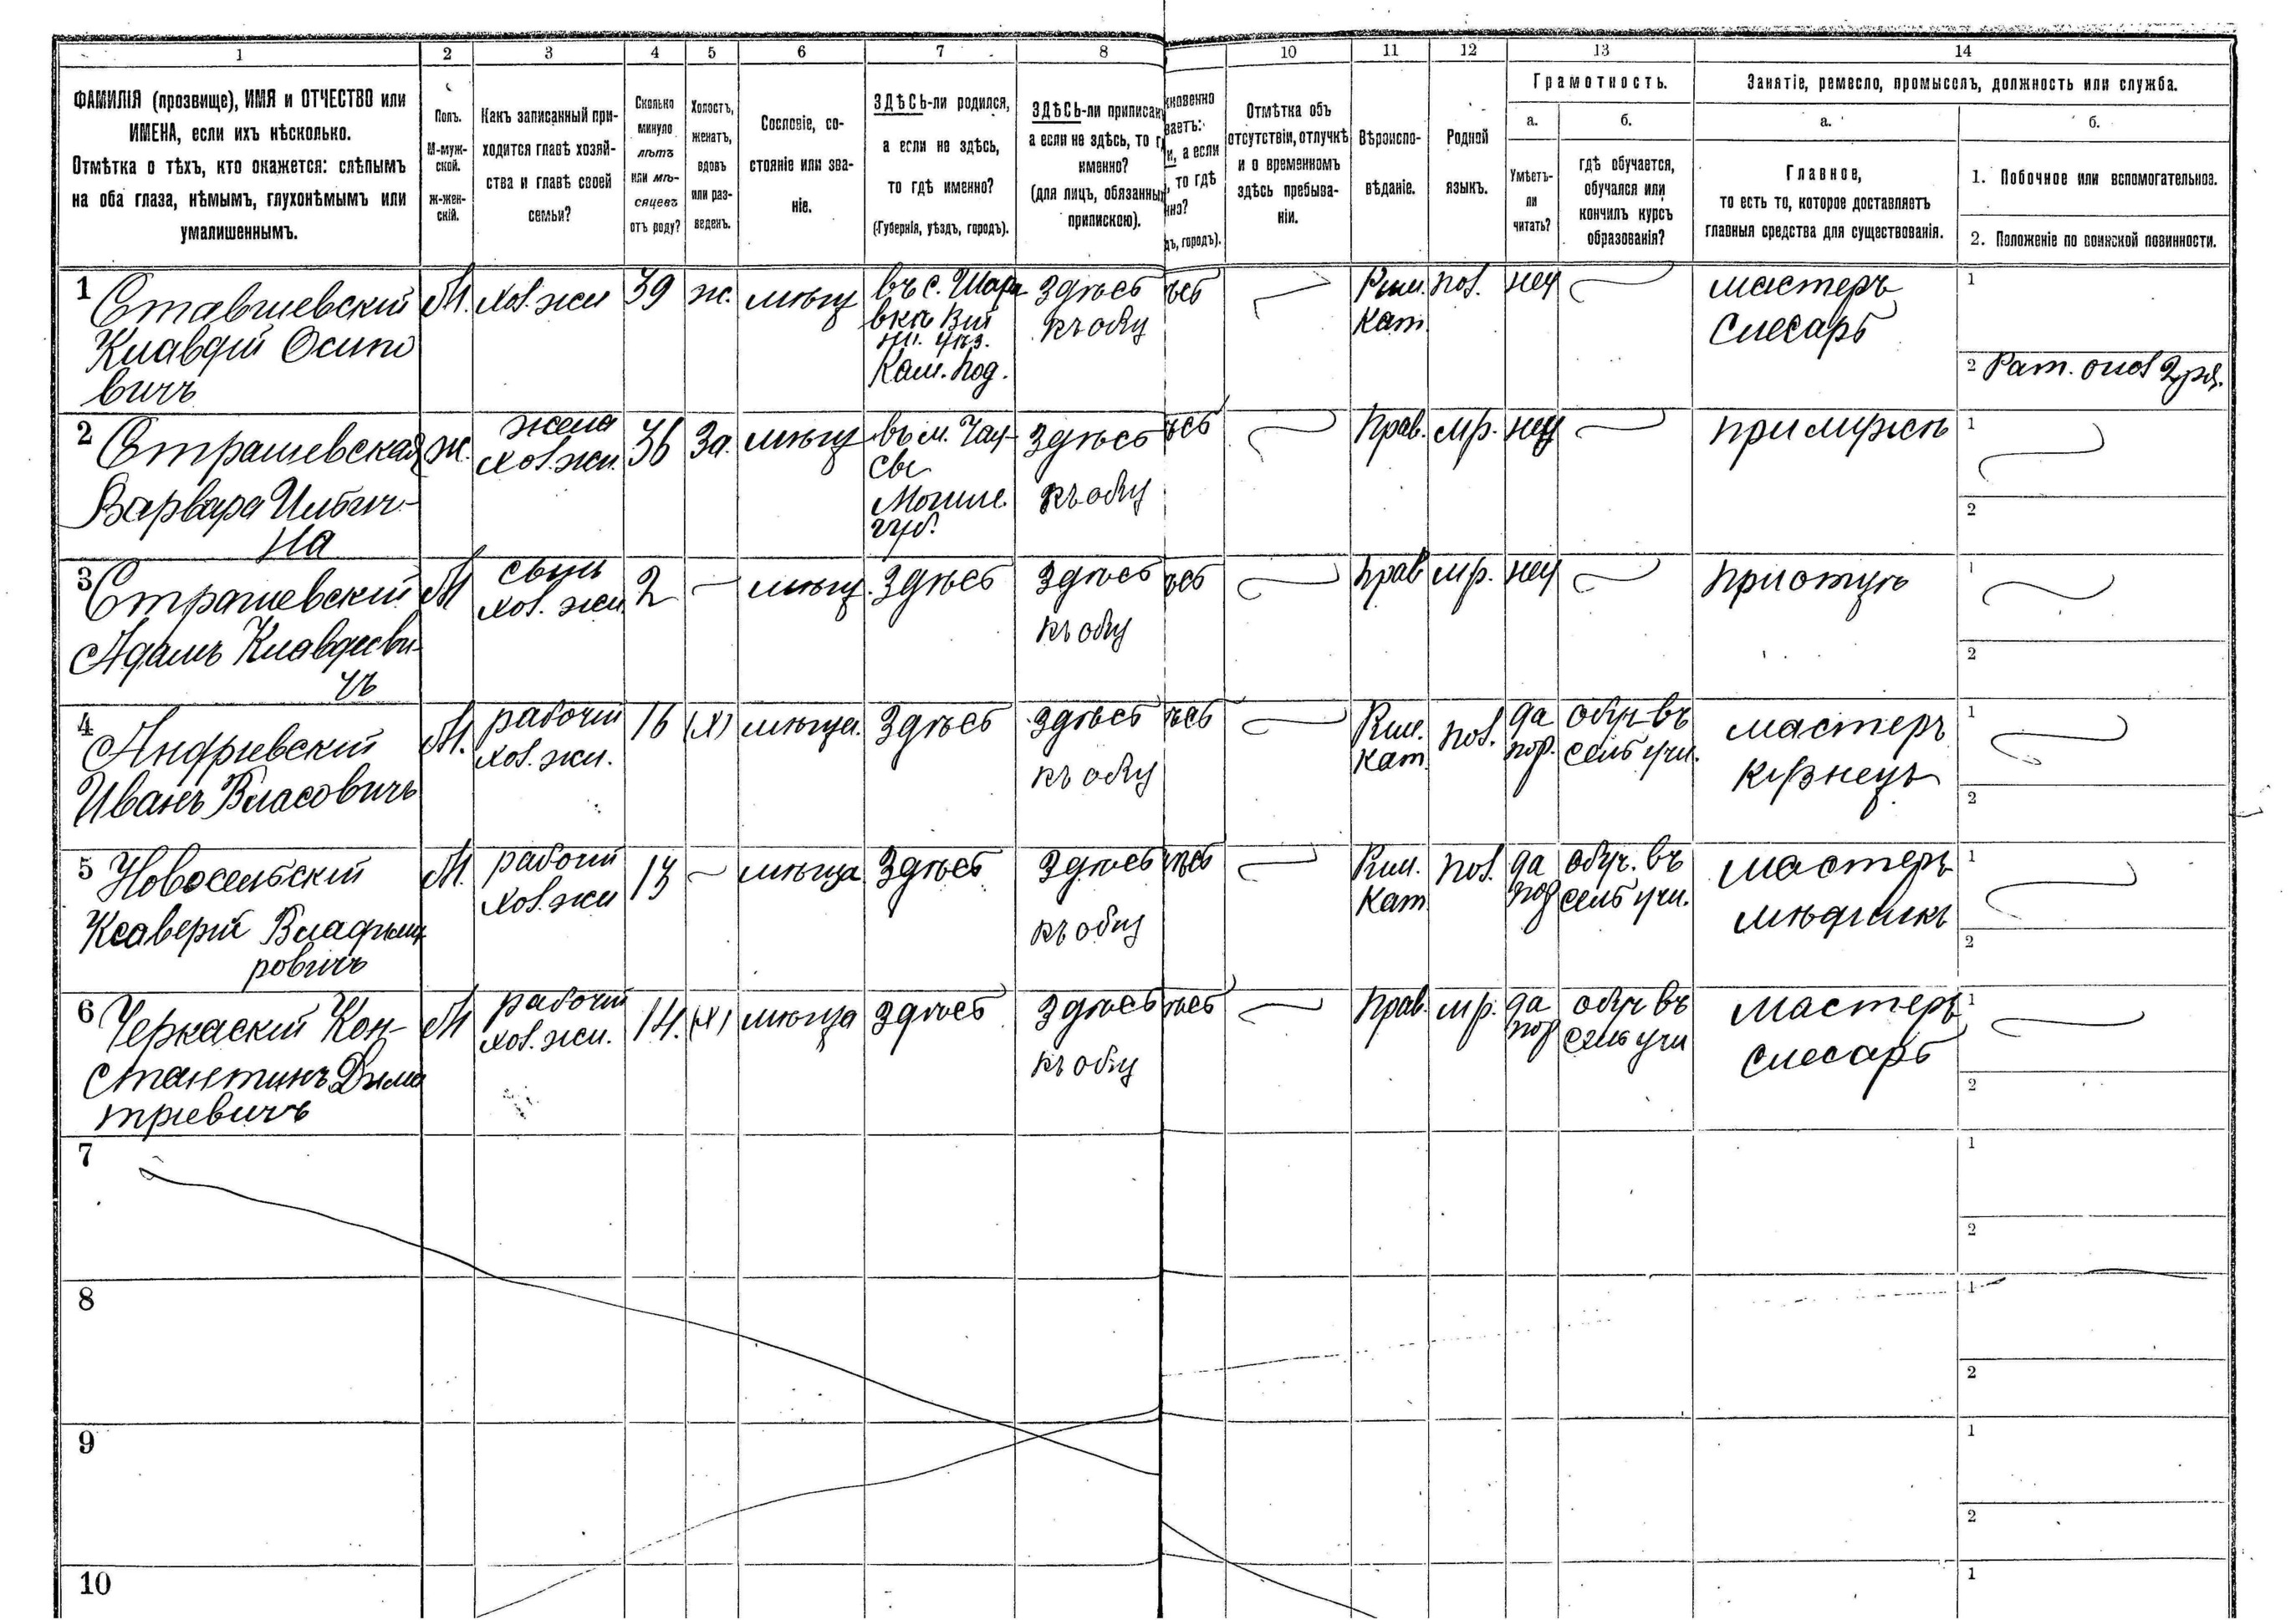 1 2 3 4 5 6 7 8 10 11 12 13 14
ФАМИЛІЯ (прозвище), ИМЯ и ОТЧЕСТВО или
ИМЕНА, если ихъ нѣсколько.
Отмѣтка о тѣхъ, кто окажется: слѣпымъ
на оба глаза, нѣмымъ, глухонѣмымъ или
умалишеннымъ.
Полъ.
М-муж-
ской.
ж-жен-
скій.
Какъ записанный при-
ходится главѣ хозяй-
ства и главѣ своей
семьи?
Сколько
минуло
лѣтъ
или мѣ-
сяцевъ
отъ роду?
Холостъ,
женатъ,
вдовъ
или раз-
веденъ.
Сословіе, со-
стояніе или зва-
ніе.
ЗДѢСЬ-ли родился,
а если не здѣсь,
то гдѣ именно?
(Губернія, уѣздъ, городъ).
ЗДѢСЬ-ли приписан
а если не здѣсь, то г
именно?
(для лицъ, обязанных
припискою).
кновенно
ваетъ:
и, а если
, то гдѣ
нно?
дъ, городъ).
Отмѣтка объ
отсутствіи, отлучкѣ
и о временномъ
здѣсь пребыва-
ніи.
Вѣроиспо-
вѣданіе.
Родной
языкъ.
Грамотность.
а.
Умѣетъ-
ли
читать?
б.
гдѣ обучается,
обучался или
кончилъ курсъ
образованія?
Занятіе, ремесло, промыселъ, должность или служба.
а.
Главное,
то есть то, которое доставляетъ
главныя средства для существованія.
б.
1. Побочное или вспомогательное.
2. Положеніе по воинской повинности.
1
Клавдій Осипо
вичъ
М. хоз. жи 39 ж. мѣщ
въ с. Шара
вкѣ
уѣз.
Кам. Под.
Здѣсь
къ общ
ѣсь
Рим. пол. нет
Кат.
мастеръ
слесарь
1
2 Рат. опол 2 ря.
2 Страшевская
Варвара Ильич-
на
ж.
жена
хоз. жи.
36 За. мѣщ
въ м. Чау-
сы
Могиле.
губ.
Здѣсь
къ общ
ѣсь
Прав. мр. нет
при мужѣ
1
2
3 Страшевскій
Адамъ Клавдіеви-
чъ
М
сынъ
хоз. жи
2 — мѣщ. Здѣсь
Здѣсь
къ общ
ѣсь
Прав мр. нет
при отцѣ
1
2
4 Андріевскій
Иванъ Власовичъ
М.
рабочій
хоз. жи.
16 (х) мѣща. Здѣсь
Здѣсь
къ общ
ѣсь
Рим. пол.
Кат
да
пор.
обуч въ
сель учи.
мастеръ
кузнецъ
1
2
5 Новосельскій
Ксаверій Владыми
ровичъ
М.
рабочій
хоз. жи
13 — мѣща Здѣсь
Здѣсь
къ общ
ѣсь
Рим. пол.
Кат
да
пор
обуч. въ
сель учи.
мастеръ
мѣдникъ
1
2
6 Черкаскій Кон-
стантинъ Дими
тріевичъ
М
рабочій
хоз. жи.
14. (х) мѣща здѣсь
Здѣсь
къ общ
ѣсь
Прав. мр.
да
пор
обуч въ
сель учи
мастеръ
слесарь
1
2
7
1
2
8
1
2
9
1
2
10
1